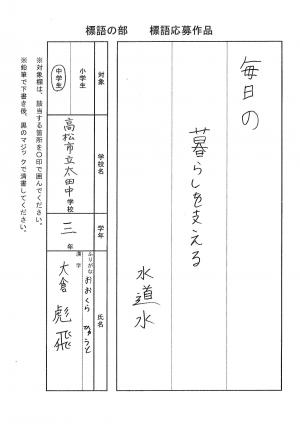 標語の部　標語応募作品
毎日の
暮らしを支える
水道水
対象
小学生
中学生
学校名
高松市立太田中学校
学年
三年
氏名
ふりがな おおくら ひゅうと
漢字 大倉 彪飛
※対象欄は、該当する箇所を〇印で囲んでください。
※鉛筆で下書き後、黒のマジックで清書してください。